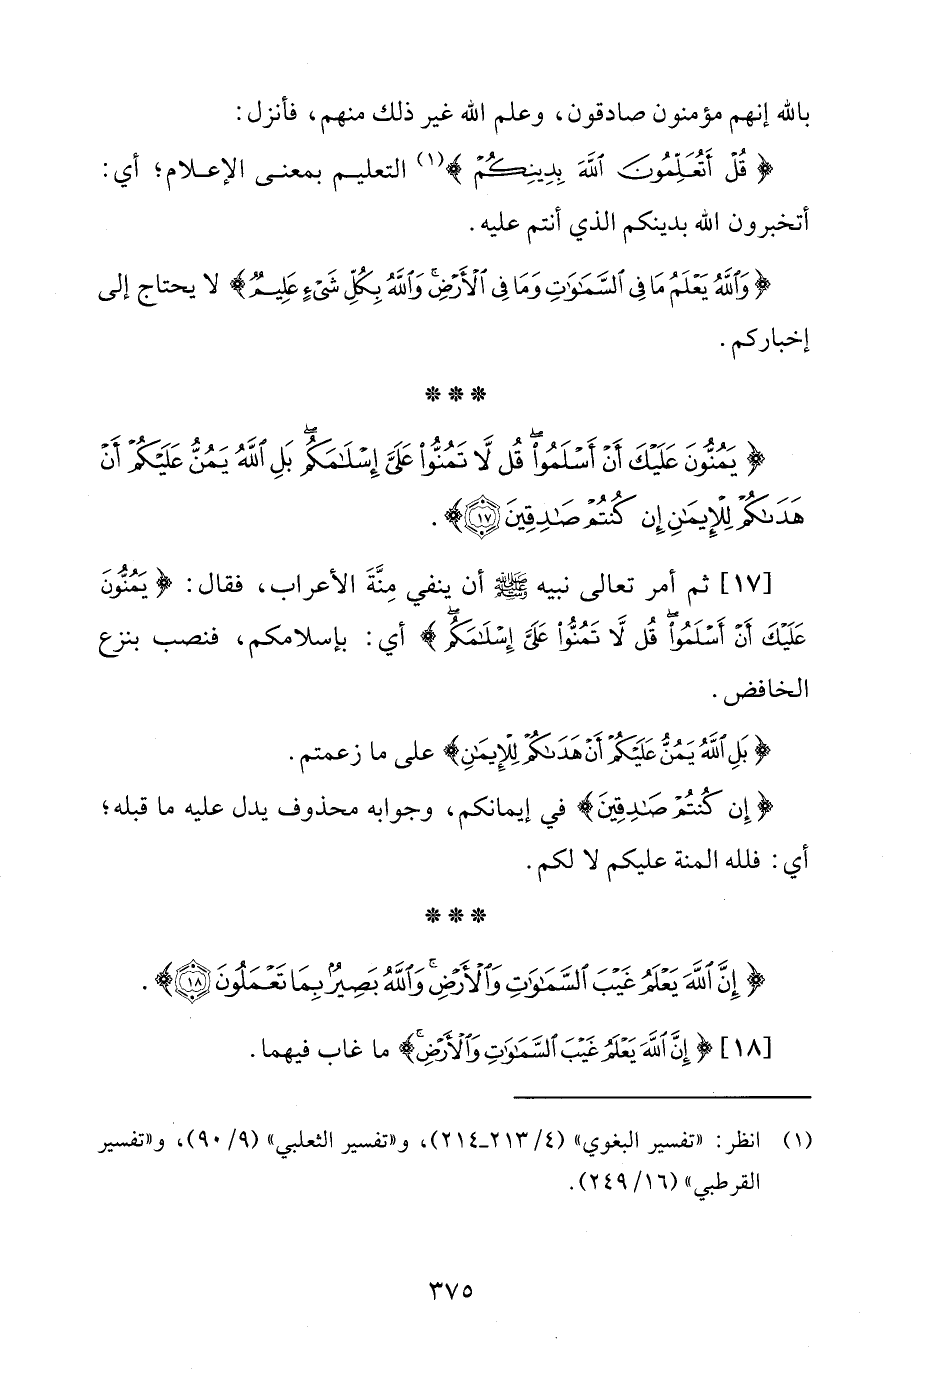 بالله إنهم مؤمنون صادقون، وعلم الله غير ذلك منهم، فأنزل:
﴿ قُلْ أَتُعَلِّمُونَ ٱللَّهَ بِدِينِكُمْ ﴾(١) التعليم بمعنى الإعلام؛ أي:
أتخبرون الله بدينكم الذي أنتم عليه.
﴿ وَٱللَّهُ يَعْلَمُ مَا فِي ٱلسَّمَٰوَٰتِ وَمَا فِي ٱلْأَرْضِۚ وَٱللَّهُ بِكُلِّ شَيْءٍ عَلِيمٌ ﴾ لا يحتاج إلى
إخباركم.
* * *
﴿ يَمُنُّونَ عَلَيْكَ أَنْ أَسْلَمُوا۟ۖ قُل لَّا تَمُنُّوا۟ عَلَيَّ إِسْلَٰمَكُمۖ بَلِ ٱللَّهُ يَمُنُّ عَلَيْكُمْ أَنْ
هَدَىٰكُمْ لِلْإِيمَٰنِ إِن كُنتُمْ صَٰدِقِينَ ١٧ ﴾.
[١٧] ثم أمر تعالى نبيه ﷺ أن ينفي مِنَّةَ الأعراب، فقال: ﴿ يَمُنُّونَ
عَلَيْكَ أَنْ أَسْلَمُوا۟ۖ قُل لَّا تَمُنُّوا۟ عَلَيَّ إِسْلَٰمَكُمۖ ﴾ أي: بإسلامكم، فنصب بنزع
الخافض.
﴿ بَلِ ٱللَّهُ يَمُنُّ عَلَيْكُمْ أَنْ هَدَىٰكُمْ لِلْإِيمَٰنِ ﴾ على ما زعمتم.
﴿ إِن كُنتُمْ صَٰدِقِينَ ﴾ في إيمانكم، وجوابه محذوف يدل عليه ما قبله؛
أي: فلله المنة عليكم لا لكم.
* * *
﴿ إِنَّ ٱللَّهَ يَعْلَمُ غَيْبَ ٱلسَّمَٰوَٰتِ وَٱلْأَرْضِۚ وَٱللَّهُ بَصِيرٌۢ بِمَا تَعْمَلُونَ ١٨ ﴾.
[١٨] ﴿ إِنَّ ٱللَّهَ يَعْلَمُ غَيْبَ ٱلسَّمَٰوَٰتِ وَٱلْأَرْضِۚ ﴾ ما غاب فيهما.
(١) انظر: «تفسير البغوي» (٤/ ٢١٣ـ٢١٤)، و«تفسير الثعلبي» (٩/ ٩٠)، و«تفسير
القرطبي» (١٦/ ٢٤٩).
٣٧٥